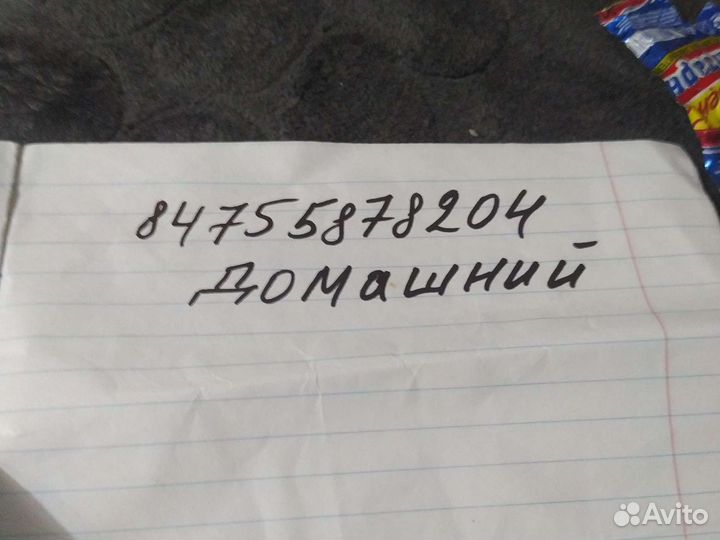 84755878204
Домашний
Avito